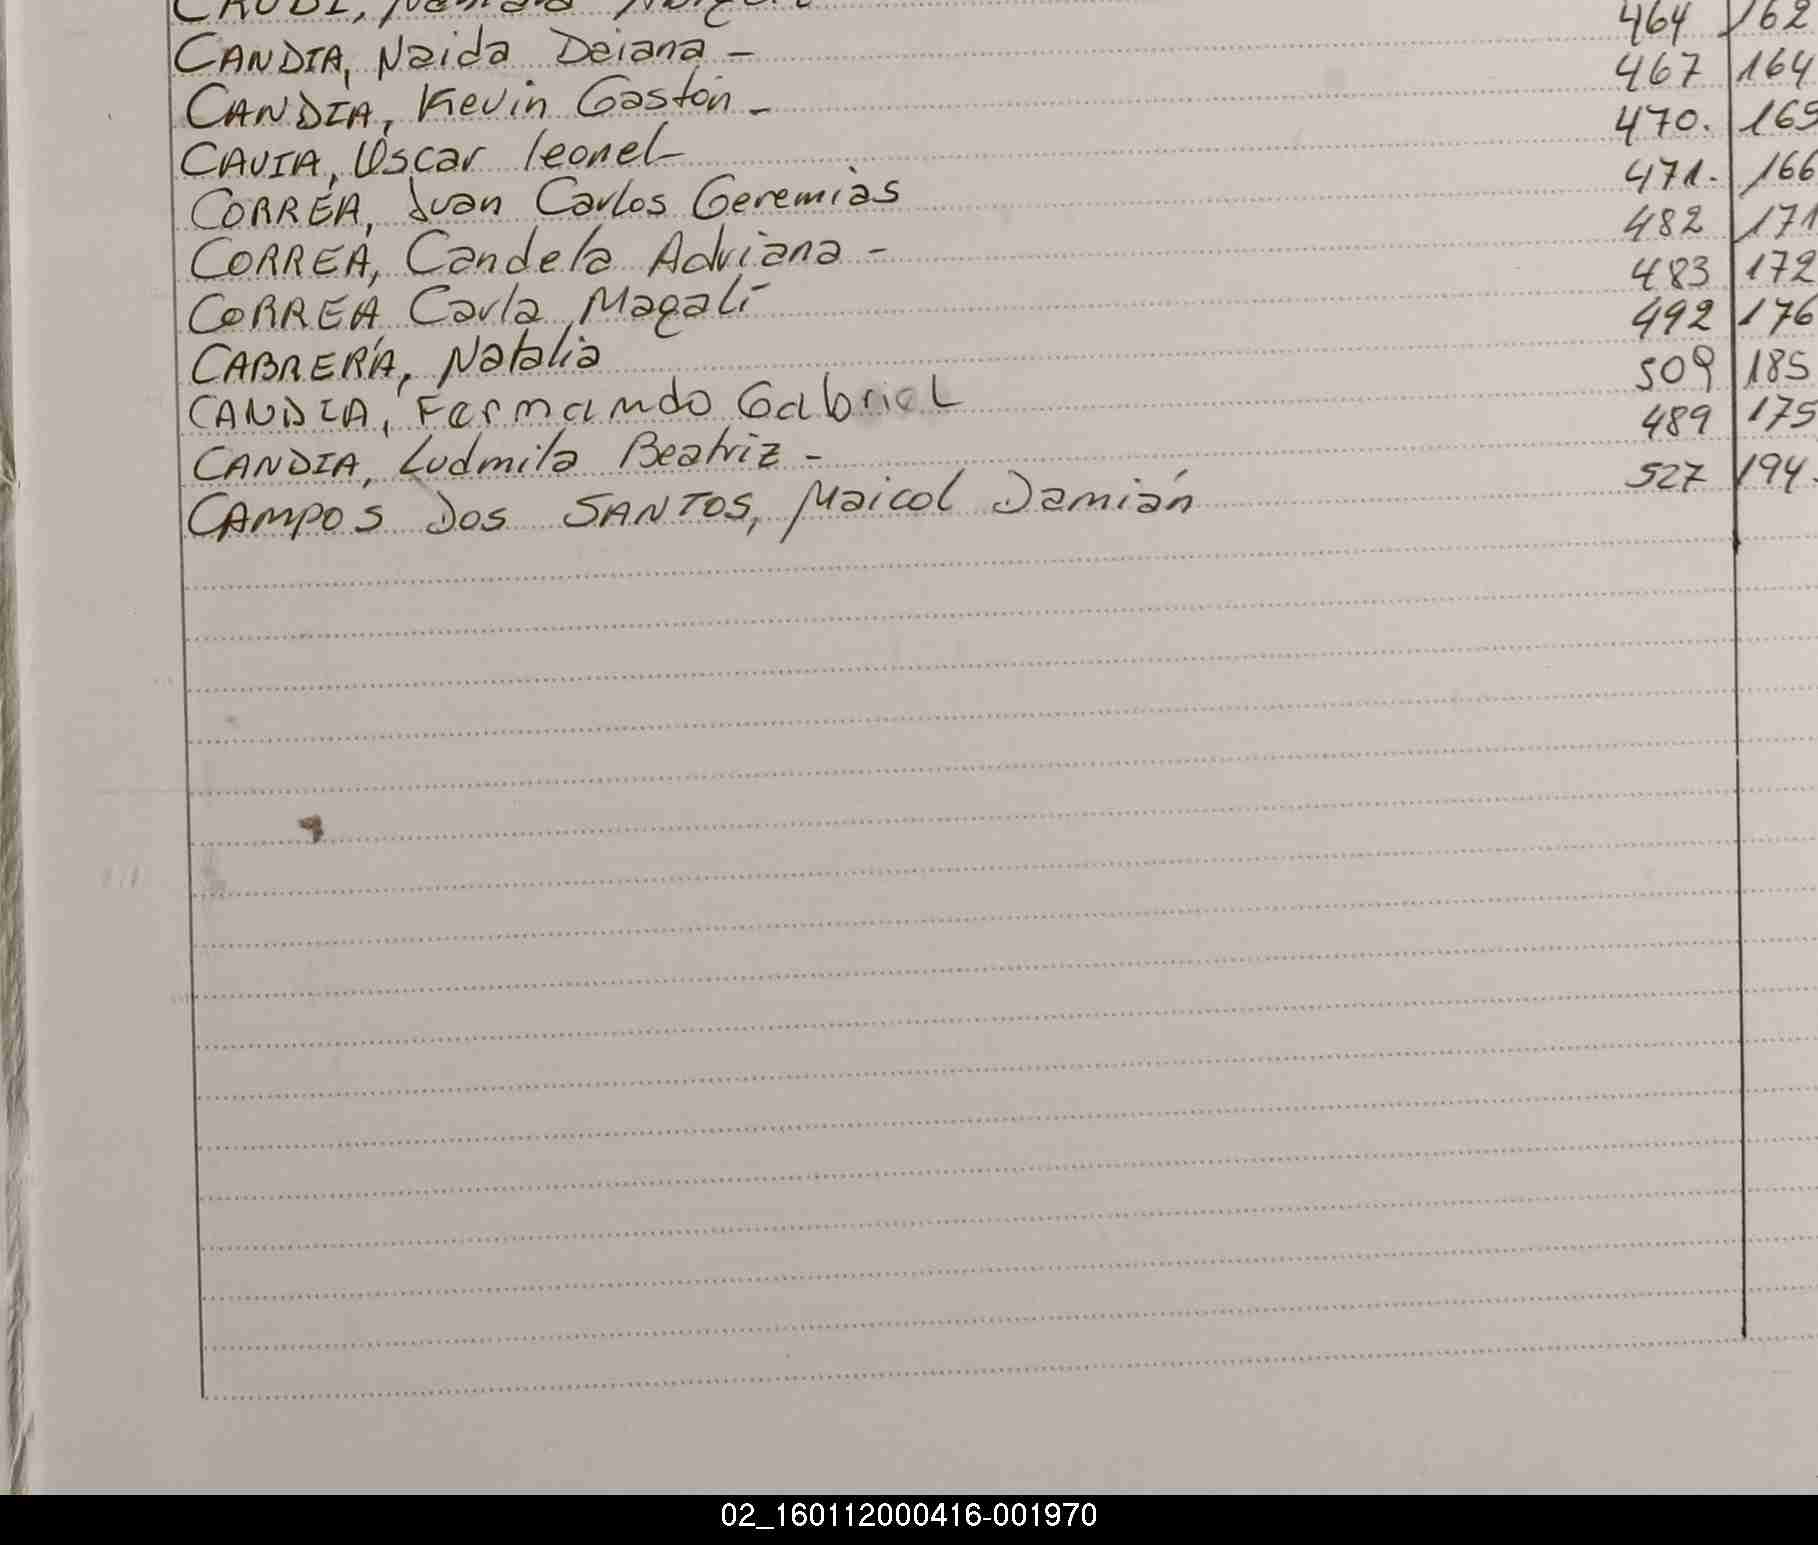 CANDIA, Naida Daiana - 464 162
CANDIA, Kevin Gastón - 467 164
CAVIA, Oscar leonel 470. 165
CORREA, Juan Carlos Geremias 471. 166
CORREA, Candela Adriana - 482 171
CORREA, Carla Magalí 483 172
CABRERA, Natalia 492 176
CANDIA, Fernando Gabriel 509 185
CANDIA, Ludmila Beatriz - 489 175
CAMPOS DOS SANTOS, Maicol Damián 527 194.
02_160112000416-001970